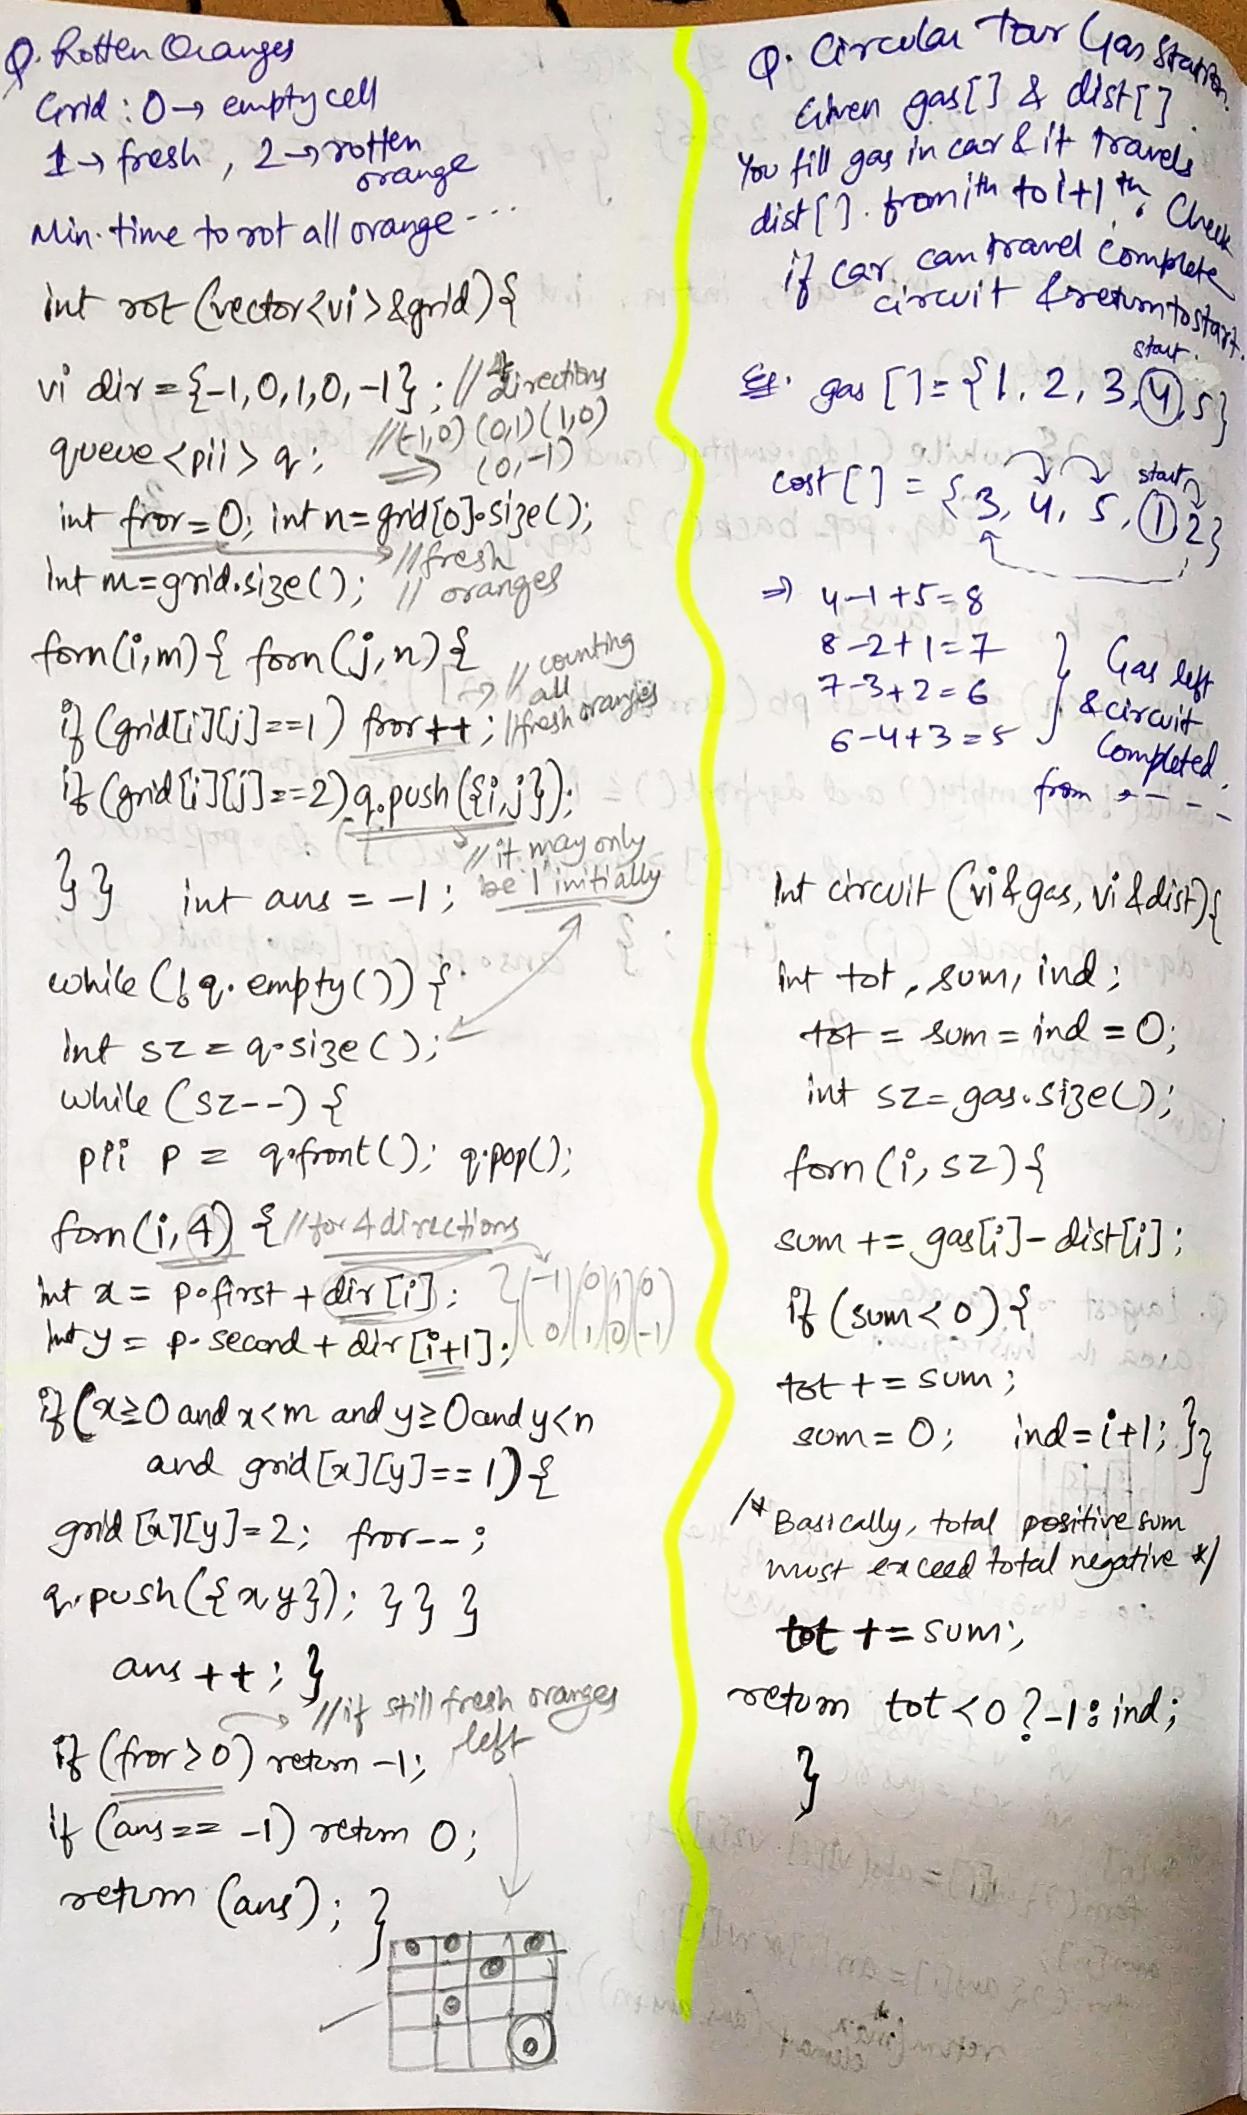 Q. Rotten Oranges
Grid : 0 → empty cell
1 → fresh , 2 → rotten
orange
Min. time to rot all orange ---
int rot (vector<vi>&grid){
vi dir = {-1,0,1,0,-1}; // 4 directions
queue <pii> q; // (-1,0) (0,1) (1,0)
(0,-1)
int fror=0; int n=grid[0].size();
// fresh
int m=grid.size(); // oranges
forn(i,m){ forn(j,n){
// counting
all
if (grid[i][j]==1) fror++; // fresh oranges
if (grid[i][j]==2) q.push({i,j});
// it may only
}} int ans = -1; be 1 initially
while (!q.empty()) {
int sz = q.size();
while (sz--) {
pii p = q.front(); q.pop();
forn(i,4) { // for 4 directions
int x = p.first + dir[i]; } (-1 (0 (1 (0
int y = p.second + dir[i+1]; 0) 1) 0) -1)
if (x≥0 and x<m and y≥0 and y<n
and grid[x][y]==1) {
grid[x][y]=2; fror--;
q.push({x,y}); } } }
ans ++; }
// if still fresh oranges
left
if (fror>0) return -1;
if (ans == -1) return 0;
return (ans); }
Q. Circular Tour Gas Station.
Given gas[] & dist[].
You fill gas in car & it travels
dist[]. from ith to i+1th. Check
if car can travel complete
circuit & return to start.
start.
Eg. gas []= {1, 2, 3, 4, 5}
start
cost [] = {3, 4, 5, 1 2}
⇒ 4-1+5=8
8-2+1=7
7-3+2=6
6-4+3=5
} Gas left
& circuit
Completed.
from ---
Int circuit (vi&gas, vi&dist){
int tot, sum, ind;
tot = sum = ind = 0;
int sz= gas.size();
forn(i,sz){
sum += gas[i]-dist[i];
if (sum<0){
tot += sum;
sum=0; ind=i+1; }}
/* Basically, total positive sum
must exceed total negative */
tot += sum;
return tot<0?-1:ind;
}